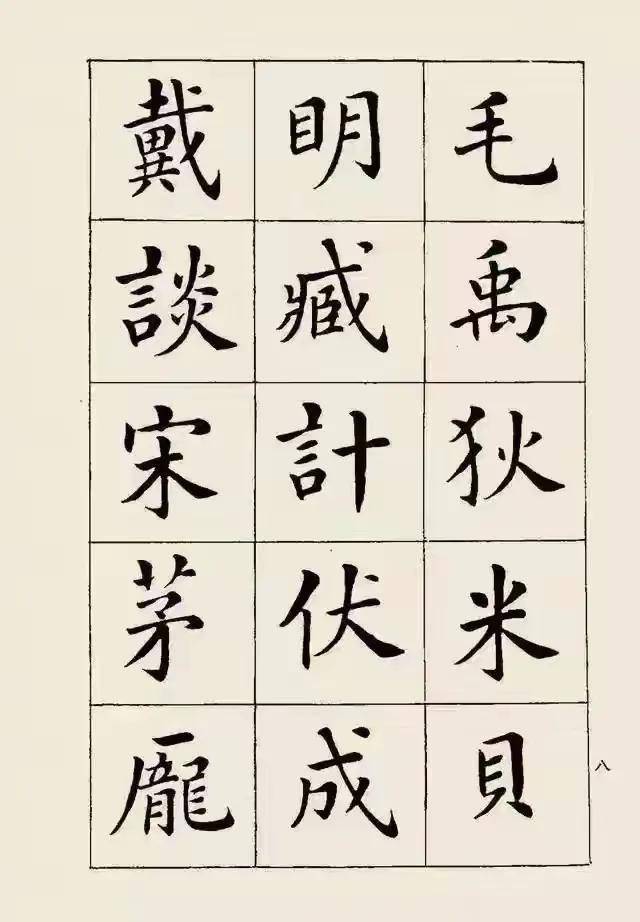 毛禹狄米貝
明臧計伏成
戴談宋茅龐
八